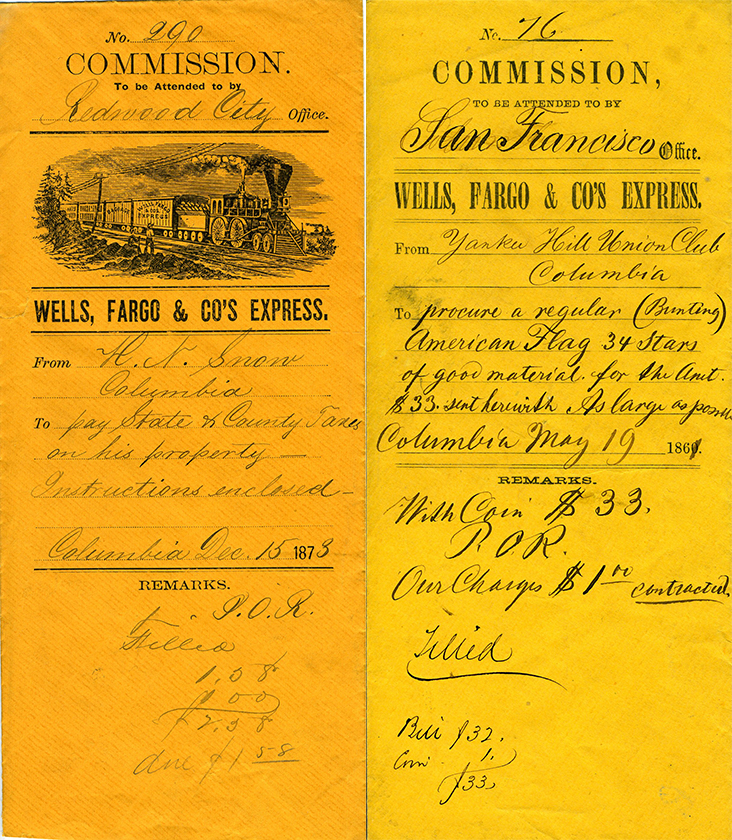 No. 290
COMMISSION.
To be Attended to by
Redwood City Office.
WELLS, FARGO & CO'S EXPRESS.
From H. N. Snow
Columbia
To pay State & County Taxes
on his property —
Instructions enclosed —
Columbia Dec. 15 1873
REMARKS.
P.O.R.
Filled
1.58
1 00
$2.58
due $1 58
No. 76
COMMISSION,
TO BE ATTENDED TO BY
San Francisco Office.
WELLS, FARGO & CO'S EXPRESS.
From Yankee Hill Union Club
Columbia
To procure a regular (Bunting)
American Flag 34 Stars
of good material for the Amt.
$33. sent herewith As large as possible
Columbia May 19 1861.
REMARKS.
With Coin $33.
P.O.R.
Our Charges $1 00 contracted.
Filled
Bill $32.
Com 1.
$33